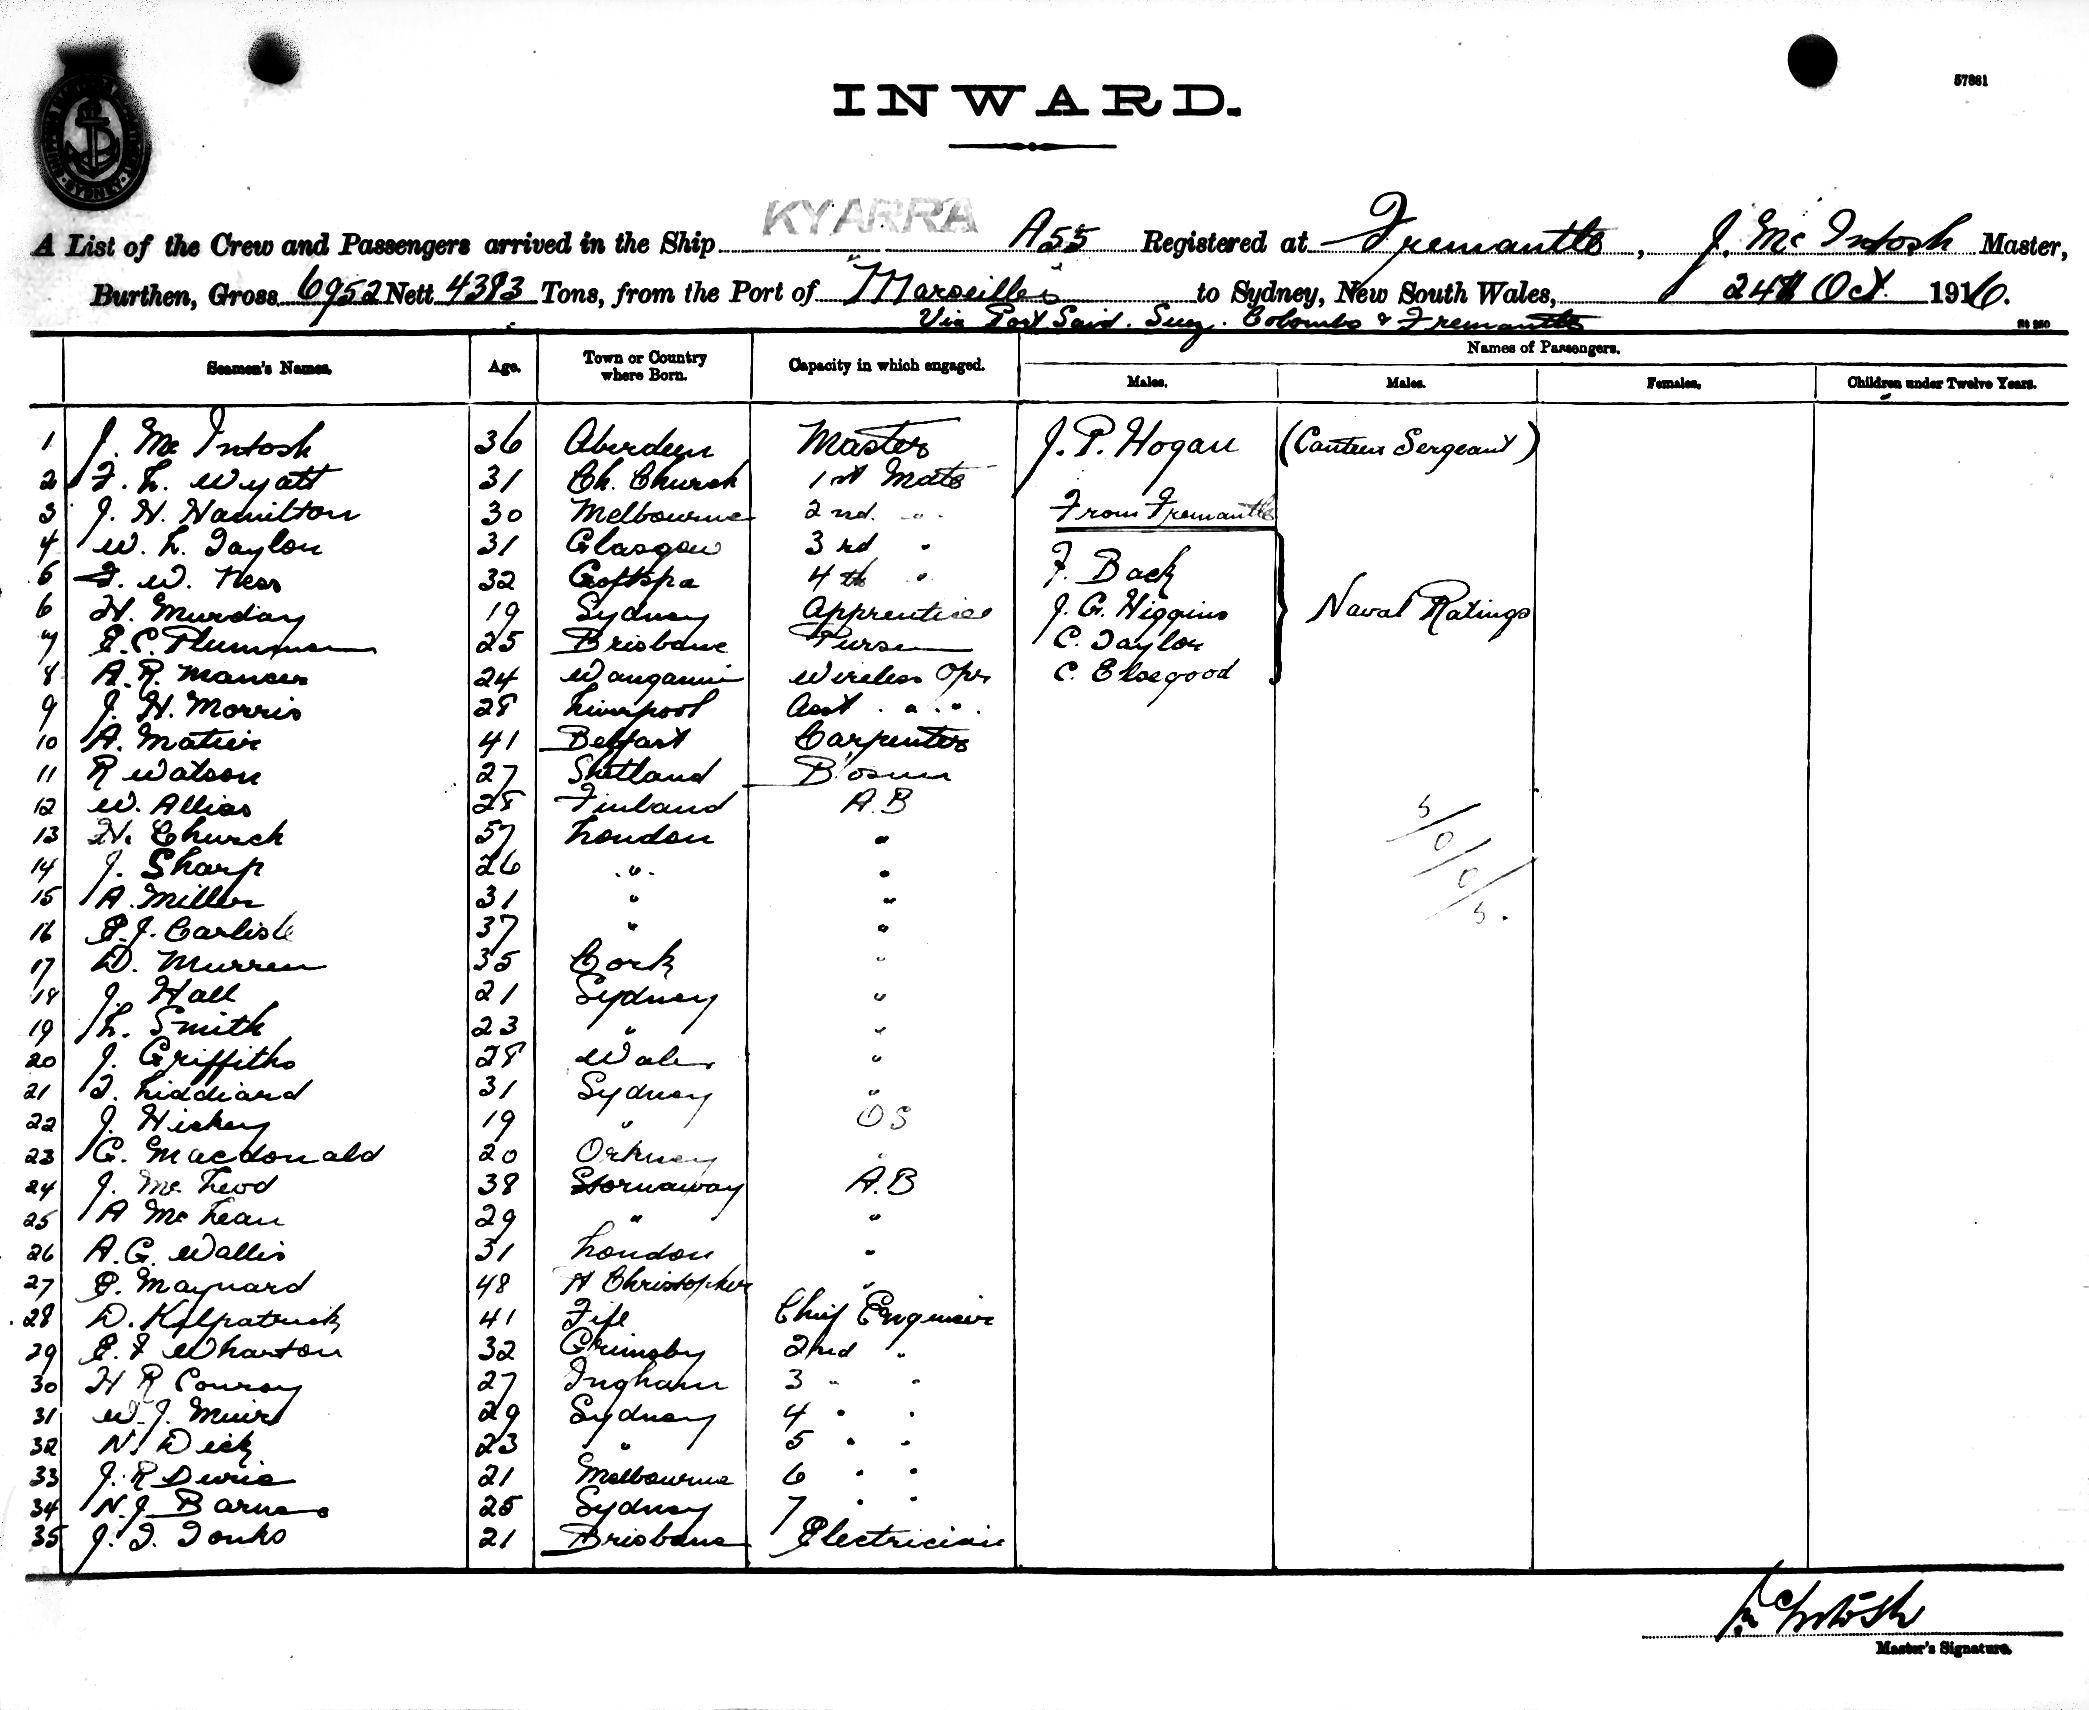 57881
INWARD.
SYDNEY
KYARRA
A List of the Crew and Passengers arrived in the Ship A55 Registered at Fremantle, J. Mc Intosh Master,
Burthen, Gross 6952 Nett 4383 Tons, from the Port of "Marseilles" to Sydney, New South Wales, 24th Oct. 1916.
Via Port Said. Suez. Colombo & Fremantle
Names of Passengers.
Seamen's Names. Age. Town or Country where Born. Capacity in which engaged. Males. Males. Females. Children under Twelve Years.
1 J. Mc Intosh 36 Aberdeen Master J. P. Hogan (Canteen Sergeant)
2 F. L. Wyatt 31 Ch. Church 1st Mate
3 J. H. Hamilton 30 Melbourne 2nd. " From Fremantle
4 W. L. Taylor 31 Glasgow 3rd " F. Back
5 F. W. Ness 32 4th "
6 H. Murday 19 Sydney Apprentice J. G. Higgins Naval Ratings
7 E. C. Plummer 25 Brisbane Purser C. Taylor
8 A. R. Mancer 24 Wanganui Wireless Opr C. Elsegood
9 J. H. Morris 28 Liverpool Asst " "
10 A. Matier 41 Belfast Carpenter
11 R Watson 27 Shetland Bosun
12 W. Allias 28 Finland A.B
13 H. Church 57 London "
14 J. Sharp 26 " "
15 A. Miller 31 " "
16 E. J. Carlisle 37 " "
17 D. Murren 35 Cork "
18 J. Hall 21 Sydney "
19 L. Smith 23 " "
20 J. Griffiths 28 Wales "
21 T. Liddiard 31 Sydney "
22 J. Hickey 19 " OS
23 G. Macdonald 20 Orkney "
24 J. Mc Leod 38 Stornaway A.B
25 A Mc Lean 29 " "
26 A. G. Wallis 31 London "
27 E. Maynard 48 St Christopher "
28 D. Kilpatrick 41 Fife Chief Engineer
29 E. F Wharton 32 Grimsby 2nd "
30 H R Conroy 27 Ingham 3 " "
31 W. J. Muir 29 Sydney 4 " "
32 N. Dick 23 " 5 " "
33 J. R 21 Melbourne 6 " "
34 N. J. Barnes 25 Sydney 7 " "
35 J. T. Tonks 21 Brisbane Electrician
5/0/0/5.
McIntosh
Master's Signature.